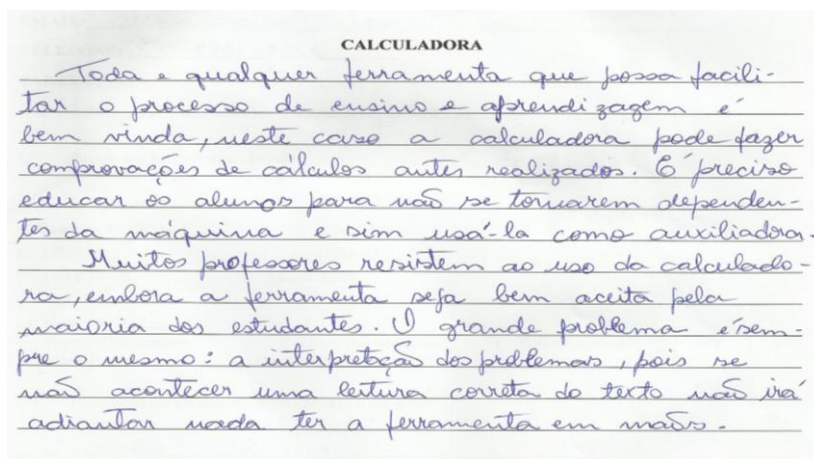 CALCULADORA
Toda e qualquer ferramenta que possa facili-
tar o processo de ensino e aprendizagem é
bem vinda, neste caso a calculadora pode fazer
comprovações de cálculos antes realizados. É preciso
educar os alunos para não se tornarem dependen-
tes da máquina e sim usá-la como auxiliadora.
Muitos professores resistem ao uso da calculado-
ra, embora a ferramenta seja bem aceita pela
maioria dos estudantes. O grande problema é sem-
pre o mesmo: a interpretação dos problemas, pois se
não acontecer uma leitura correta do texto não irá
adiantar nada ter a ferramenta em mãos.